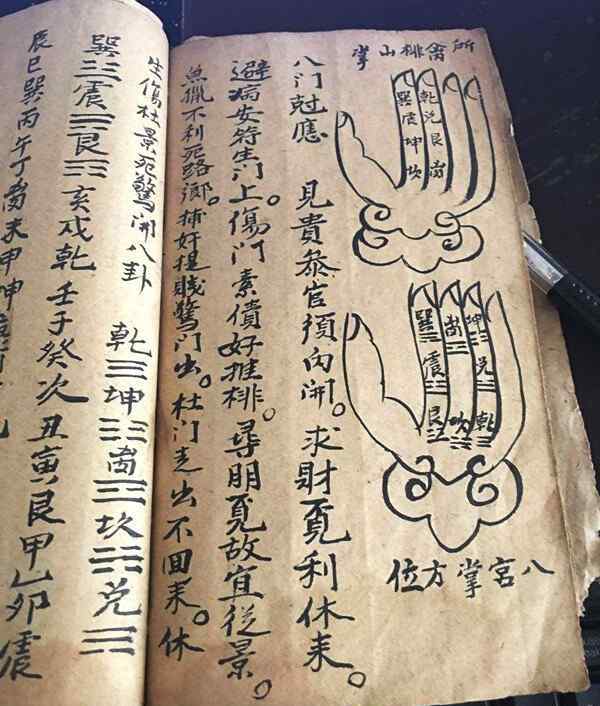 所禽排山掌
乾兑艮离
巽震坤坎
坤兑乾
离坎
巽震艮
八宮掌方位
八门尅應 見貴叅官須向開。求財覓利休来。
避病安符生门上。傷门索債好推排。尋朋覓故宜從景。
魚獵不利死路鄉。捕奸捉賊驚门出。杜门走出不回来。休
生傷杜景死驚開八卦 乾☰坤☷离☲坎☵兑☱
巽☴震☳艮☶亥戌乾壬子癸次丑寅艮甲乙卯震
辰巳巽丙午丁离未申坤